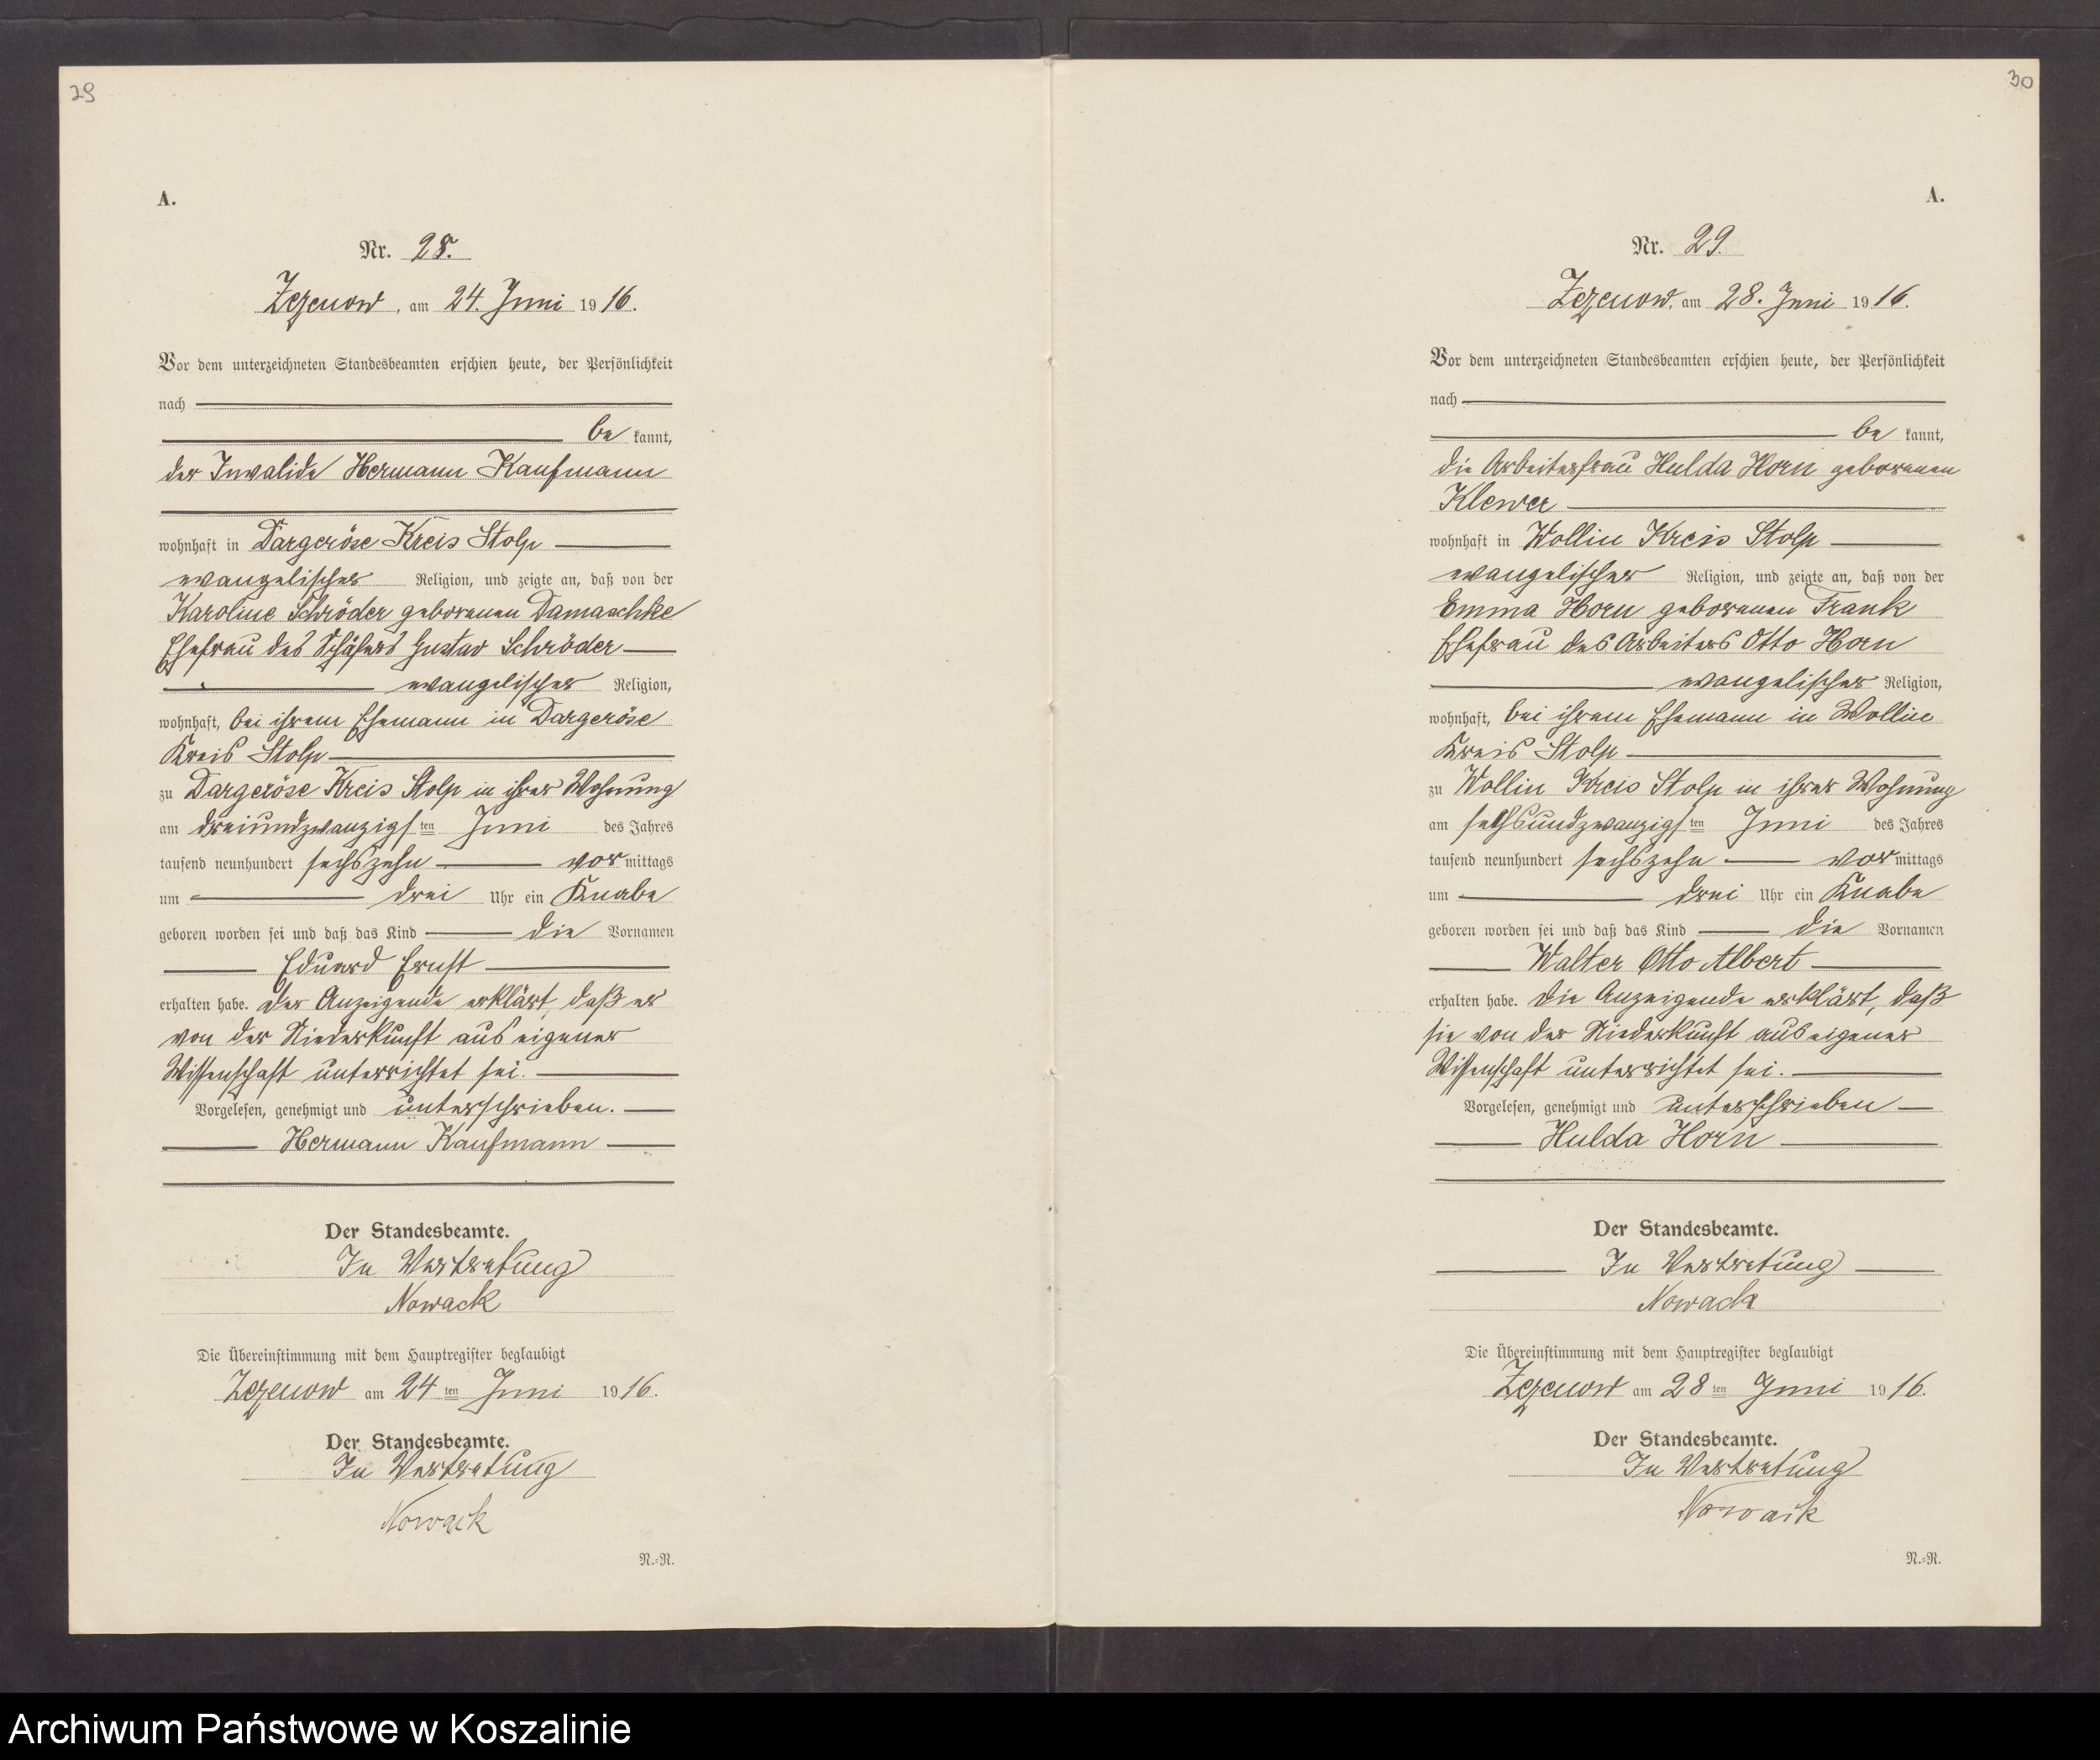 29
A.
Nr. 28.
Zezenow, am 24. Juni 1916.
Vor dem unterzeichneten Standesbeamten erschien heute, der Persönlichkeit
nach
be kannt,
der Invalide Hermann Kaufmann
wohnhaft in Dargeröse Kreis Stolp
evangelischer Religion, und zeigte an, daß von der
Karoline Schröder geborenen Damaschke
Ehefrau des Schäfers Gustav Schröder
evangelischer Religion,
wohnhaft, bei ihrem Ehemann in Dargeröse
Kreis Stolp
zu Dargeröse Kreis Stolp in ihrer Wohnung
am dreiundzwanzigsten Juni des Jahres
tausend neunhundert sechszehn vormittags
um drei Uhr ein Knabe
geboren worden sei und daß das Kind die Vornamen
Eduard Ernst
erhalten habe. Der Anzeigende erklärt, daß er
von der Niederkunft aus eigener
Wissenschaft unterrichtet sei.
Vorgelesen, genehmigt und unterschrieben.
Hermann Kaufmann
Der Standesbeamte.
In Vertretung
Nowack
Die Übereinstimmung mit dem Hauptregister beglaubigt
Zezenow am 24ten Juni 1916.
Der Standesbeamte.
In Vertretung
Nowack
N.=R.
30
A.
Nr. 29.
Zezenow, am 28. Juni 1916.
Vor dem unterzeichneten Standesbeamten erschien heute, der Persönlichkeit
nach
be kannt,
die Arbeiterfrau Hulda Horn geborenen
Klewer
wohnhaft in Wollin Kreis Stolp
evangelischer Religion, und zeigte an, daß von der
Emma Horn geborenen Frank
Ehefrau des Arbeiters Otto Horn
evangelischer Religion,
wohnhaft, bei ihrem Ehemann in Wollin
Kreis Stolp
zu Wollin Kreis Stolp in ihrer Wohnung
am sechsundzwanzigsten Juni des Jahres
tausend neunhundert sechszehn vormittags
um drei Uhr ein Knabe
geboren worden sei und daß das Kind die Vornamen
Walter Otto Albert
erhalten habe. Die Anzeigende erklärt, daß
sie von der Niederkunft aus eigener
Wissenschaft unterrichtet sei.
Vorgelesen, genehmigt und unterschrieben
Hulda Horn
Der Standesbeamte.
In Vertretung
Nowack
Die Übereinstimmung mit dem Hauptregister beglaubigt
Zezenow am 28ten Juni 1916.
Der Standesbeamte.
In Vertretung
Nowack
N.=R.
Archiwum Państwowe w Koszalinie